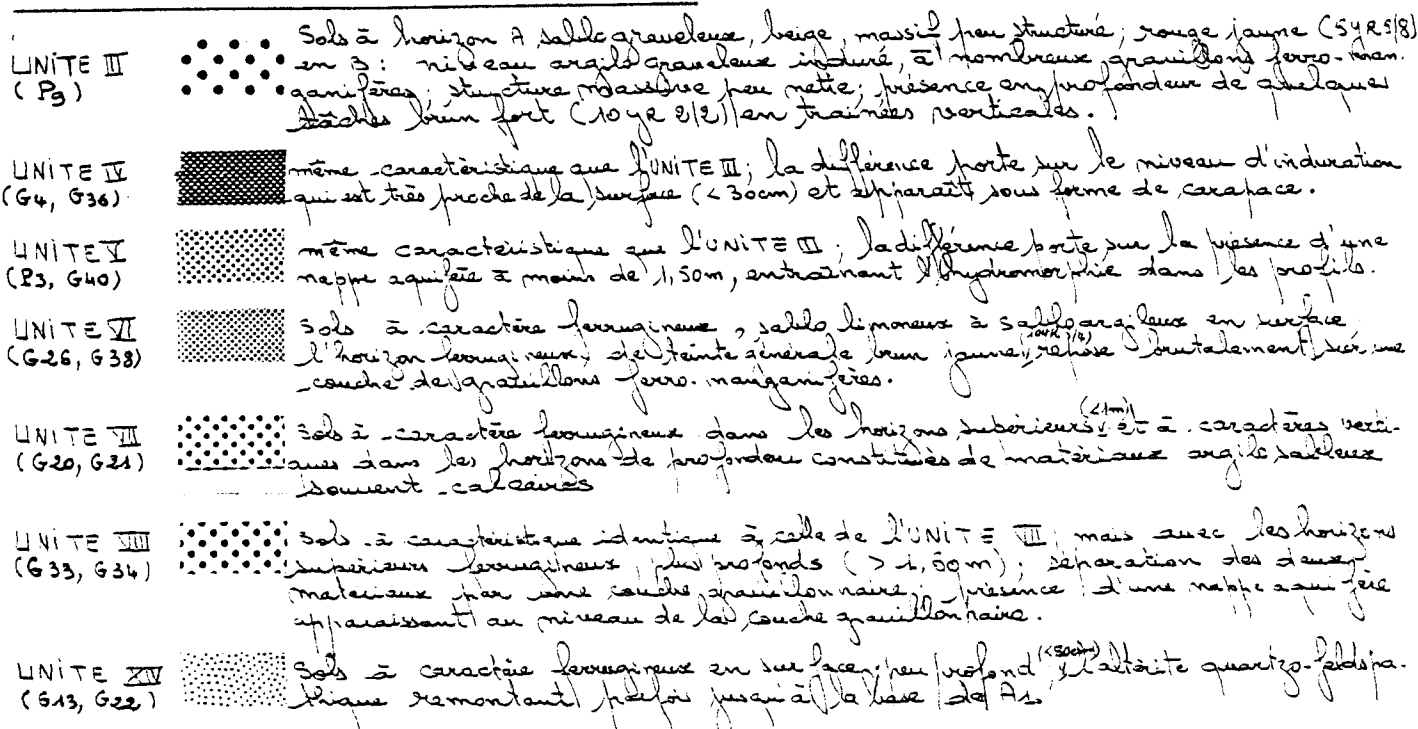 Sols à horizon A sablo graveleux, beige, massif peu structuré; rouge jaune (5YR 5/8)
UNITE III (P9) en B: niveau argilo graveleux induré, à nombreux gravillons ferro-man-
ganifères; structure massive peu nette; présence en profondeur de quelques
tâches brun fort (10 YR 2/2) en trainées verticales.
UNITE IV (G4, G36) même caractéristique que l'UNITE III; la différence porte sur le niveau d'induration
qui est très proche de la surface (< 30cm) et apparaît sous forme de carapace.
UNITE V (P3, G40) même caractéristique que l'UNITE III; la différence porte sur la présence d'une
nappe aquifère à moins de 1,50m, entraînant l'hydromorphie dans les profils.
UNITE VI (G26, G38) Sols à caractère ferrugineux, sablo limoneux à sablo argileux en surface
l'horizon ferrugineux, de teinte générale brun jaune, repose brutalement sur une
couche de gravillons ferro-manganifères.
UNITE VII (G20, G21) Sols à caractère ferrugineux dans les horizons supérieurs (<1m) et à caractères verti-
ques dans les horizons de profondeur constitués de matériaux argilo sableux
souvent calcaires
UNITE VIII (G33, G34) Sols à caractéristique identique à celle de l'UNITE VII mais avec les horizons
supérieurs ferrugineux plus profonds (> 1,50m); séparation des deux
matériaux par une couche gravillonnaire; présence d'une nappe aquifère
apparaissant au niveau de la couche gravillonnaire.
UNITE XIV (G13, G22) Sols à caractère ferrugineux en surface, peu profond (<50cm) l'altérite quartzo-feldspa-
thique remontant parfois jusqu'à la base de A1.